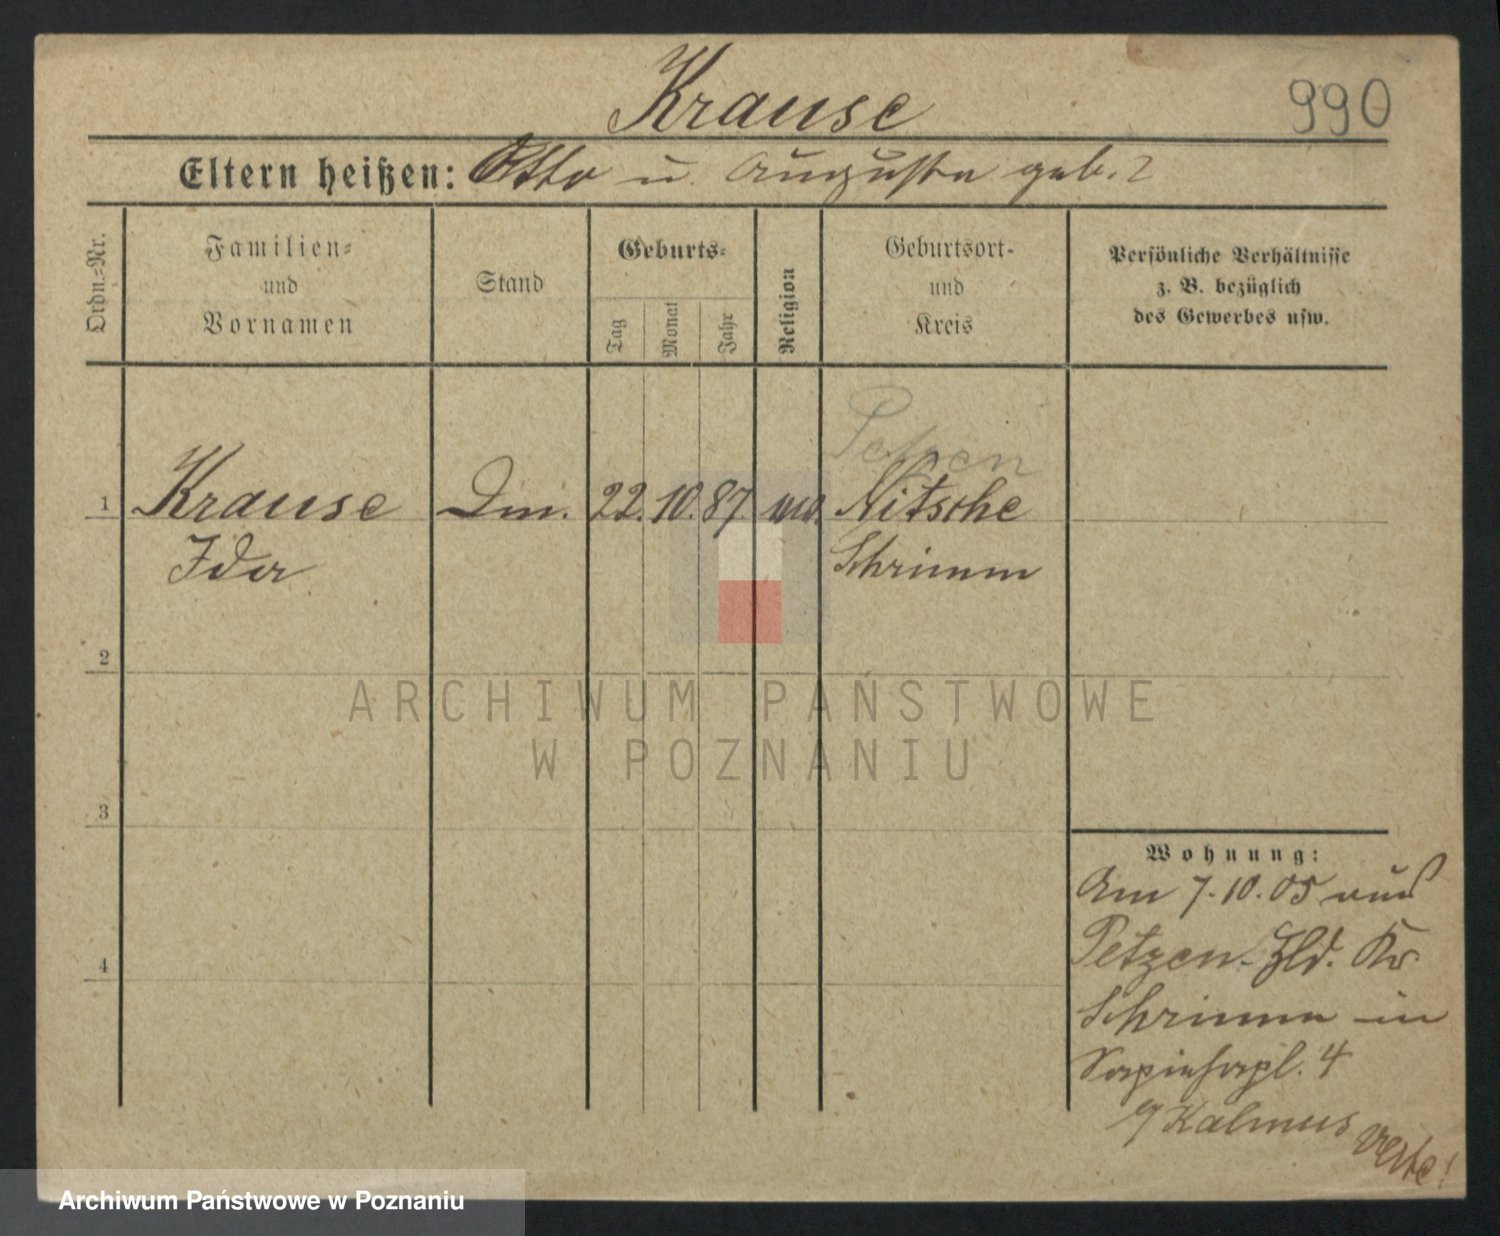 Krause
990
Eltern heißen: Otto u. Auguste geb. ?
Ordn.=Nr.
Familien=
und
Vornamen
Stand
Geburts=
Tag
Monat
Jahr
Religion
Geburtsort-
und
Kreis
Persönliche Verhältnisse
z. B. bezüglich
des Gewerbes usw.
Petzen
1 Krause Dm. 22. 10. 87. Nitsche
Ida Schrimm
2
3
4
ARCHIWUM PAŃSTWOWE
W POZNANIU
Wohnung:
Am 7.10.05 aus
Petzen-Hld. Kr.
Schrimm in
Sapiehapl. 4
Kalmus
Verte!
Archiwum Państwowe w Poznaniu